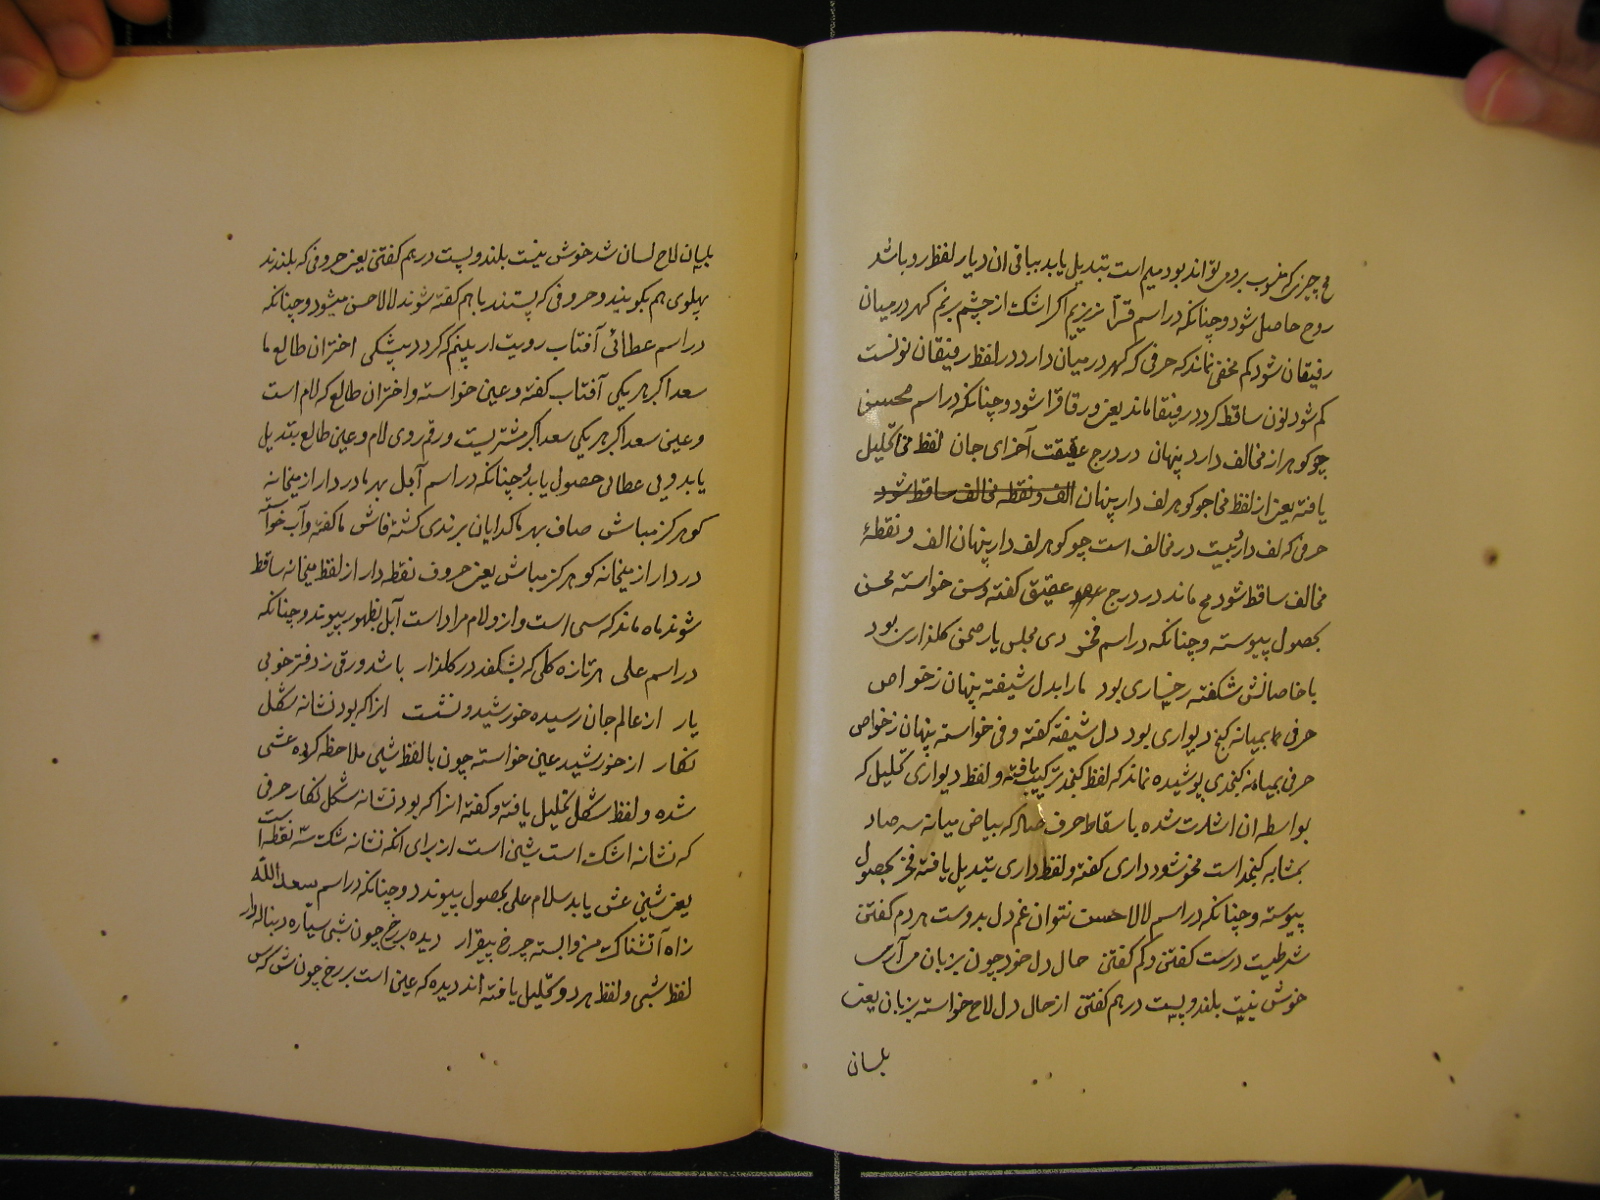 مح چیزی که منسوب بردی تواند بود میم است تبدیل یابد بباقی ان دیار لفظ رو باشد
روح حاصل شود و چنانکه در اسم قرآ عزیزیم اکر اشکت از چشم برنم کهر در میان
رفیقان شود کم مخفی نماند که حرفی که کهر در میان دارد در لفظ رفیقان نونست
کم شود نون ساقط کردد رفیقا ماند یعنی ورقا قرا شود و چنانکه در اسم محسن
چو کوهر از مخالف دارد پنهان در درج عقیقت آخر ای جان لفظ مخا تحلیل
یافته یعنی از لفظ مخا چو کوهر لف دار پنهان الف و نقطه مخالف ساقط شود
حرفی که لف دار نیست در مخالف است چو کوهر لف دار پنهان الف و نقطهٔ
مخالف ساقط شود مح ماند در درج عقیق کفته و سن خواسته محسن
بحصول پیوسته و چنانکه در اسم فخر دی مجلس یار صحن کلذاری بود
با خاصانش شکفته رخساری بود ما را بدل شیفته پنهان ز خواص
حرفی بمیانه کنج دیواری بود دل شیفته کفته و فی خواسته پنهان ز خواص
حرفی بمیانه کنجدی پوشیده نماند که لفظ کنجد ترکیب یافته و لفظ دیواری تحلیل که
بواسطه ان اشارت شده باسقاط حرف صاد که بیاض میانه سه صاد
بمشابه کنجد است محو شود داری کفته و لفظ داری تبدیل یافته فخر بحصول
پیوسته و چنانکه در اسم لالا حسن نتوان غم دل بدوست هر دم کفتن
شرطیست درست کفتن و کم کفتن حال دل خود چون بزبان می آری
خوش نیست بلند و پست در هم کفتن از حال دل لاح خواسته بزبان یعنی
بلسان
بلسان لاح لسان شد خوش نیست بلند و پست در هم کفتن یعنی حروفی که بلندند
پهلوی هم بکویند و حروفی که پستند با هم کفته شوند لالا حسن میشود و چنانکه
در اسم عطائی آفتاب رویت ار بینم که کردد بیشکی اختران طالع ما
سعد اکبر هر یکی آفتاب کفته و عین خواسته و اختران طالع که لام است
و عین سعد اکبر هر یکی سعد اکبر مشتریست و رقم روی لام و عین طالع بتدیل
یابد و یی عطائی حصول یابد و چنانکه در اسم آبل بهر ما در دار از میخانه
کو هرکز مباش صاف بهر ما کدایان برندی کشته فاش ما کفته و آب خواسته
در دار از میخانه کو هرکز مباش یعنی حروف نقطه دار از لفظ میخانه ساقط
شوند ماه ماند که سی است و ازو لام مراد است آبل بظهور پیوند و چنانکه
در اسم علی هر تازه کلی که بشکفد در کلذار باشد ورقی ز دفتر خوبی
یار از عالم جان رسیده خورشید و نشت انرا که بود نشانه شکل
نکار از خورشید عین خواسته چون با لفظ شین ملاحظه کرده عشی
شده و لفظ شکل تحلیل یافته و کفته انرا که بود نشانه شکل نکار حرفی
که نشانه اشک است شین است از برای انکه نشانه شک سه نقطه است
یعنی شین عش یابد سلام علی بحصول پیوندد و چنانکه در اسم سعد الله
ز آه آتشناکت من وابسته چرخ بیقرار دیده بر رخ چون شبی سیاره دنباله دار
لفظ شبی و لفظ هر دو تحلیل یافته اند دیده که عین است بر رخ چون ش که س